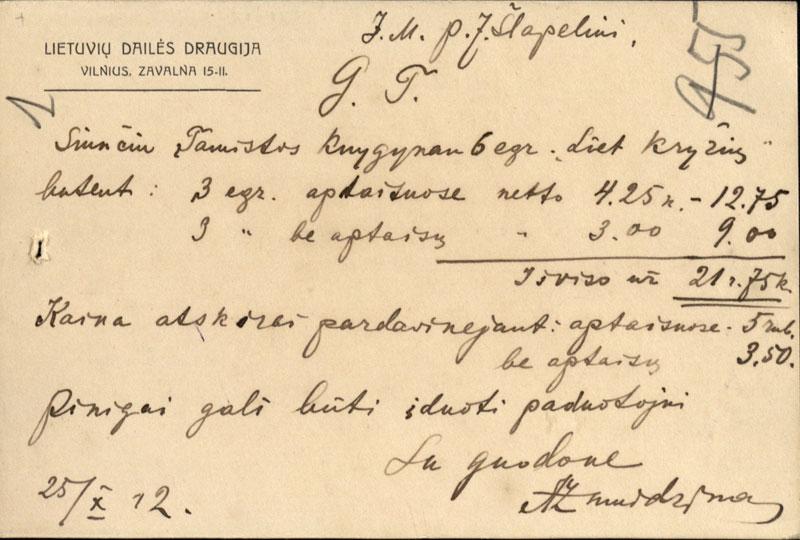 J. M. p. J. Šlapelini,
LIETUVIŲ DAILĖS DRAUGIJA
VILNIUS, ZAVALNA 15-11.
955
G. T.
Siunčiu Tamistos knygynan 6 egz. „Liet kryžių"
butent: 3 egz. aptaisuose netto 4.25 k. - 12.75
3 " be aptaisų " 3.00 9.00
Išviso už 21 r. 75 k.
Kaina atskirai pardavinejant: aptaisuose - 5 rub.
be aptaisų 3.50.
Pinigai gali būti įduoti paduotojui
Su guodone
25/X 12.
AŽmuidzinas